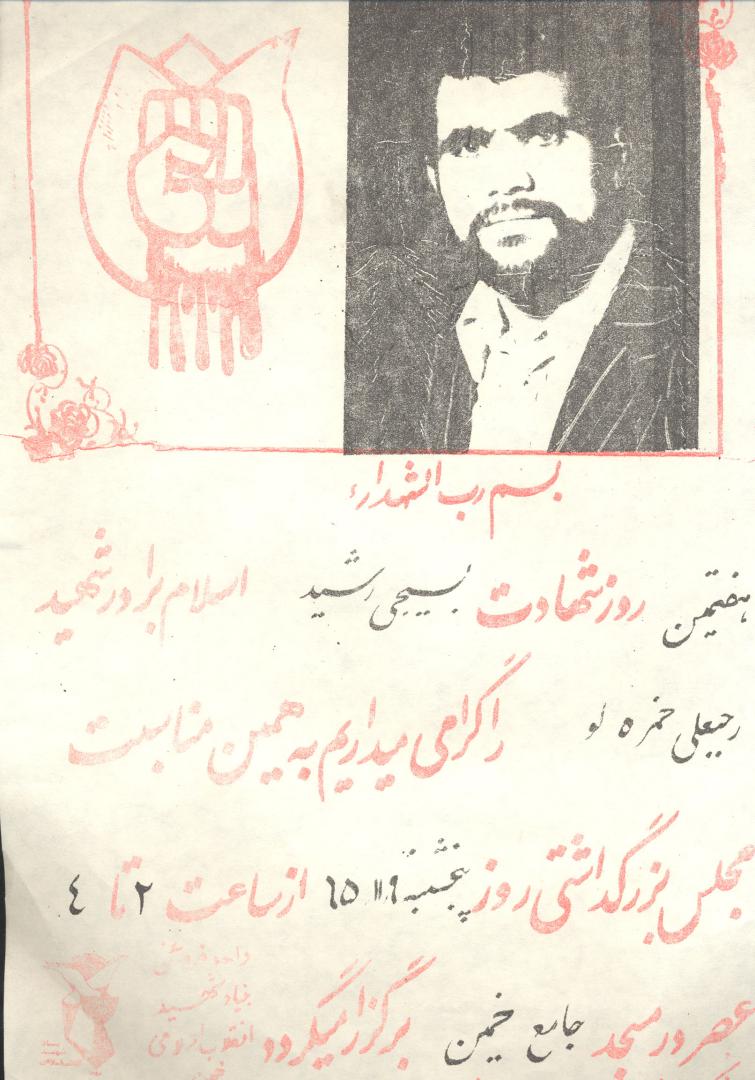 بسم رب الشهداء
هفتمین روز شهادت بسیجی رشید اسلام برادر شهید
رجبعلی حمزه لو را گرامی میداریم به همین مناسبت
مجلس بزرگداشتی روز پنجشنبه ٦٥ از ساعت ٢ تا ٤
عصر در مسجد جامع خمین برگزار میگردد
واحد فرهنگی
بنیاد شهید
انقلاب اسلامی
خمین